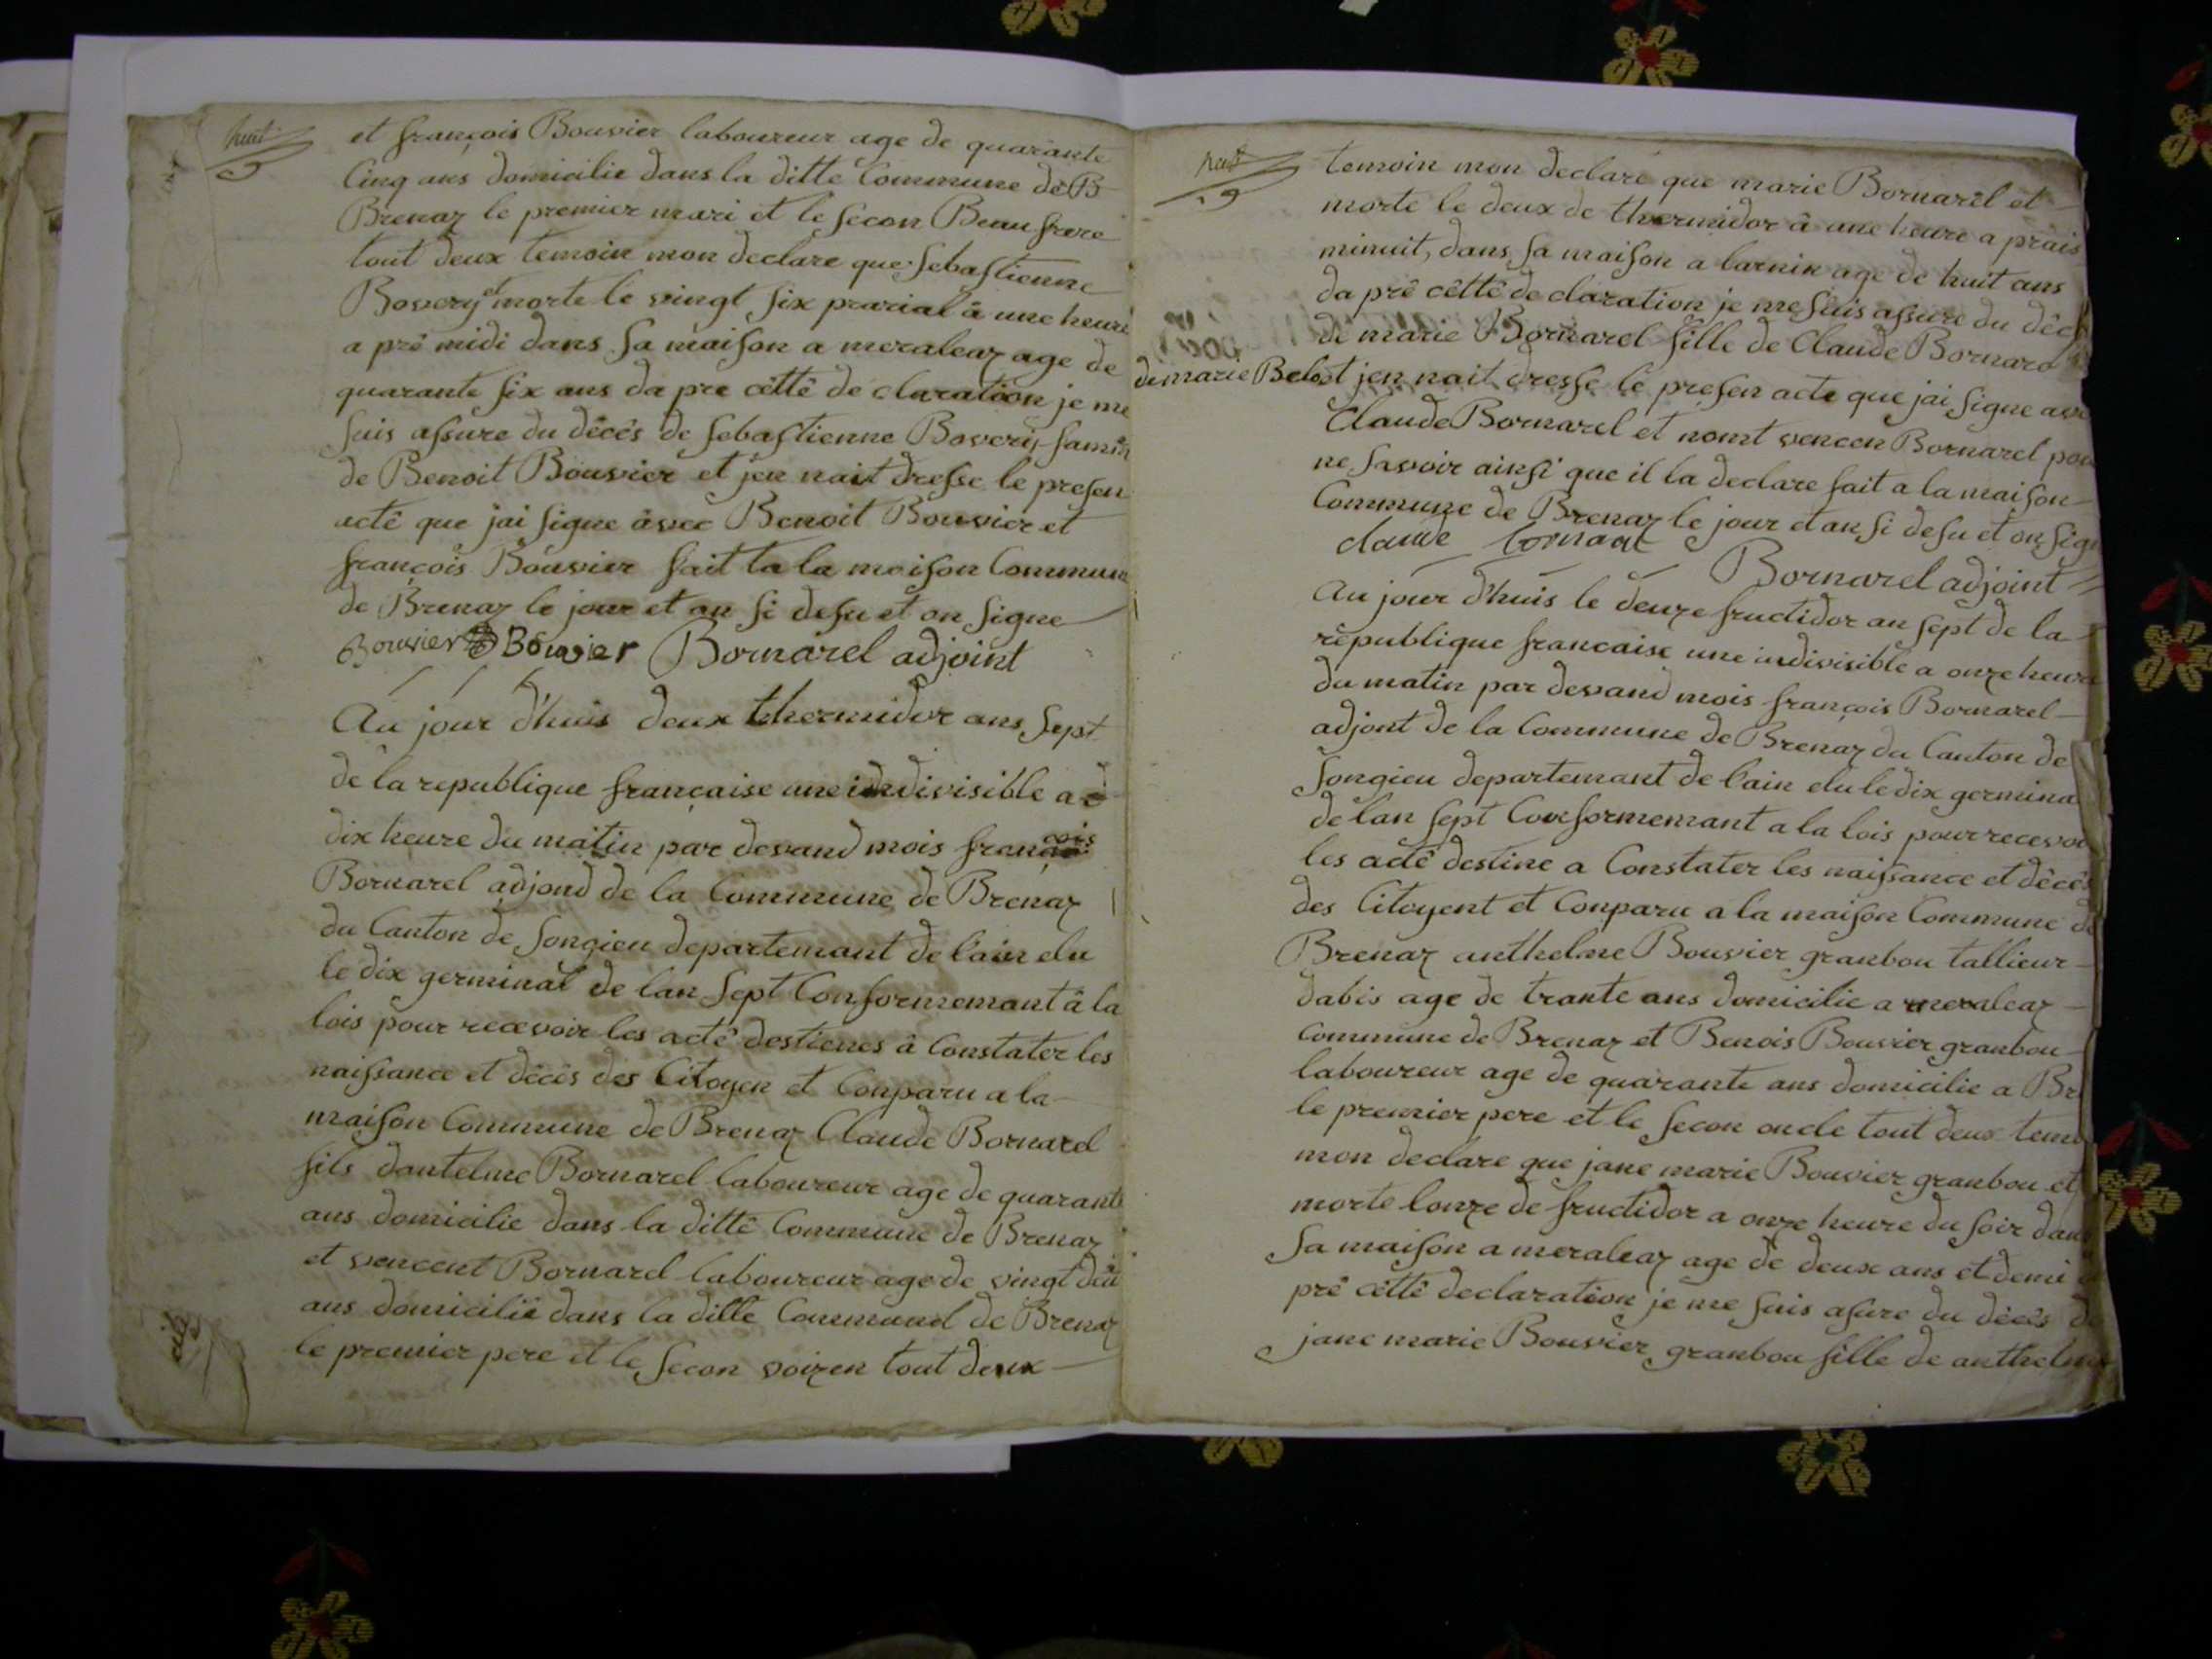 huit
et françois Bouvier laboureur age de quarante
Cinq ans domicilie dans la ditte Commune de B
Brenaz le premier mari et le secon Beau frere
tout deux temoin mon declare que sebastienne
Bovery et morte le vingt six prarial â une heure
a prê midi dans sa maison a meraleaz age de
quarante six ans da pre cêttê de claration je me
suis assure du dêcês de sebastienne Bovery famm
de Benoit Bouvier et jen nait dresse le presen
actê que jai signe âvec Benoit Bouvier et
françois Bouvier fait ta la maison Commune
de Brenaz le jour et an si desu et on signe
Bouvier Bouvier Bornarel adjoint
Au jour d'huis deux thermidor ans sept
de la republique française une indivisible a
dix heure du matin par devand mois françois
Bornarel adjond de la Commune de Brenaz
du Canton de songieu departemant de l'ain elu
le dix germinal de lan sept Conformemant â la
lois pour recevoir les actê destienes â Constater les
naissance et dêcês des Citoyen et Conparu a la
maison Commune de Brenaz Claude Bornarel
fils dantelme Bornarel laboureur age de quarante
ans domicilie dans la dittê Commune de Brenaz
et vencent Bornarel laboureur age de vingt deu
ans domicilié dans la ditte Commune de Brenaz
le premier pere et le secon voizen tout deux
huit
temoin mon declare que marie Bornarel et
morte le deux de thermidor â une heure a prais
minuit, dans sa maison a larnin age de huit ans
da prê cêttê de claration je me suis assure du dêc
de marie Bornarel fille de Claude Bornarel
de marie Belost jen nait dressê lê presen acte que jai signe ave
Claude Bornarel et nomt vencen Bornarel pou
ne savoir ainsi que il la declare fait a la maison
Commune de Brenaz le jour et an si desu et on sign
claude bornarel
Bornarel adjoint
Au jour d'huis le deuze fructidor an sept de la
rêpublique francaise une indivisible a onze heure
du matin par devand mois françois Bornarel
adjont de la Commune de Brenaz du Canton de
songieu departemant de l'ain elu le dix germina
de lan sept Conformemant a la lois pour recevoi
les actê destine a Constater les naissance et dêcês
des Citoyent et Conparu a la maison Commune de
Brenaz anthelme Bouvier granbou tallieur
dabis age de trante ans domicilie a meraleaz
commune de Brenaz et Benois Bouvier granbou
laboureur age de quarante ans domicilie a Br
le premier pere et le secon oncle tout deux temo
mon declare que jane marie Bouvier granbou et
morte lonze de fructidor a onze heure du soir dans
sa maison a meraleaz age de deux ans et demi
prê cêttê declaration je me suis asure du dêcês de
jane marie Bouvier granbou fille de anthelme